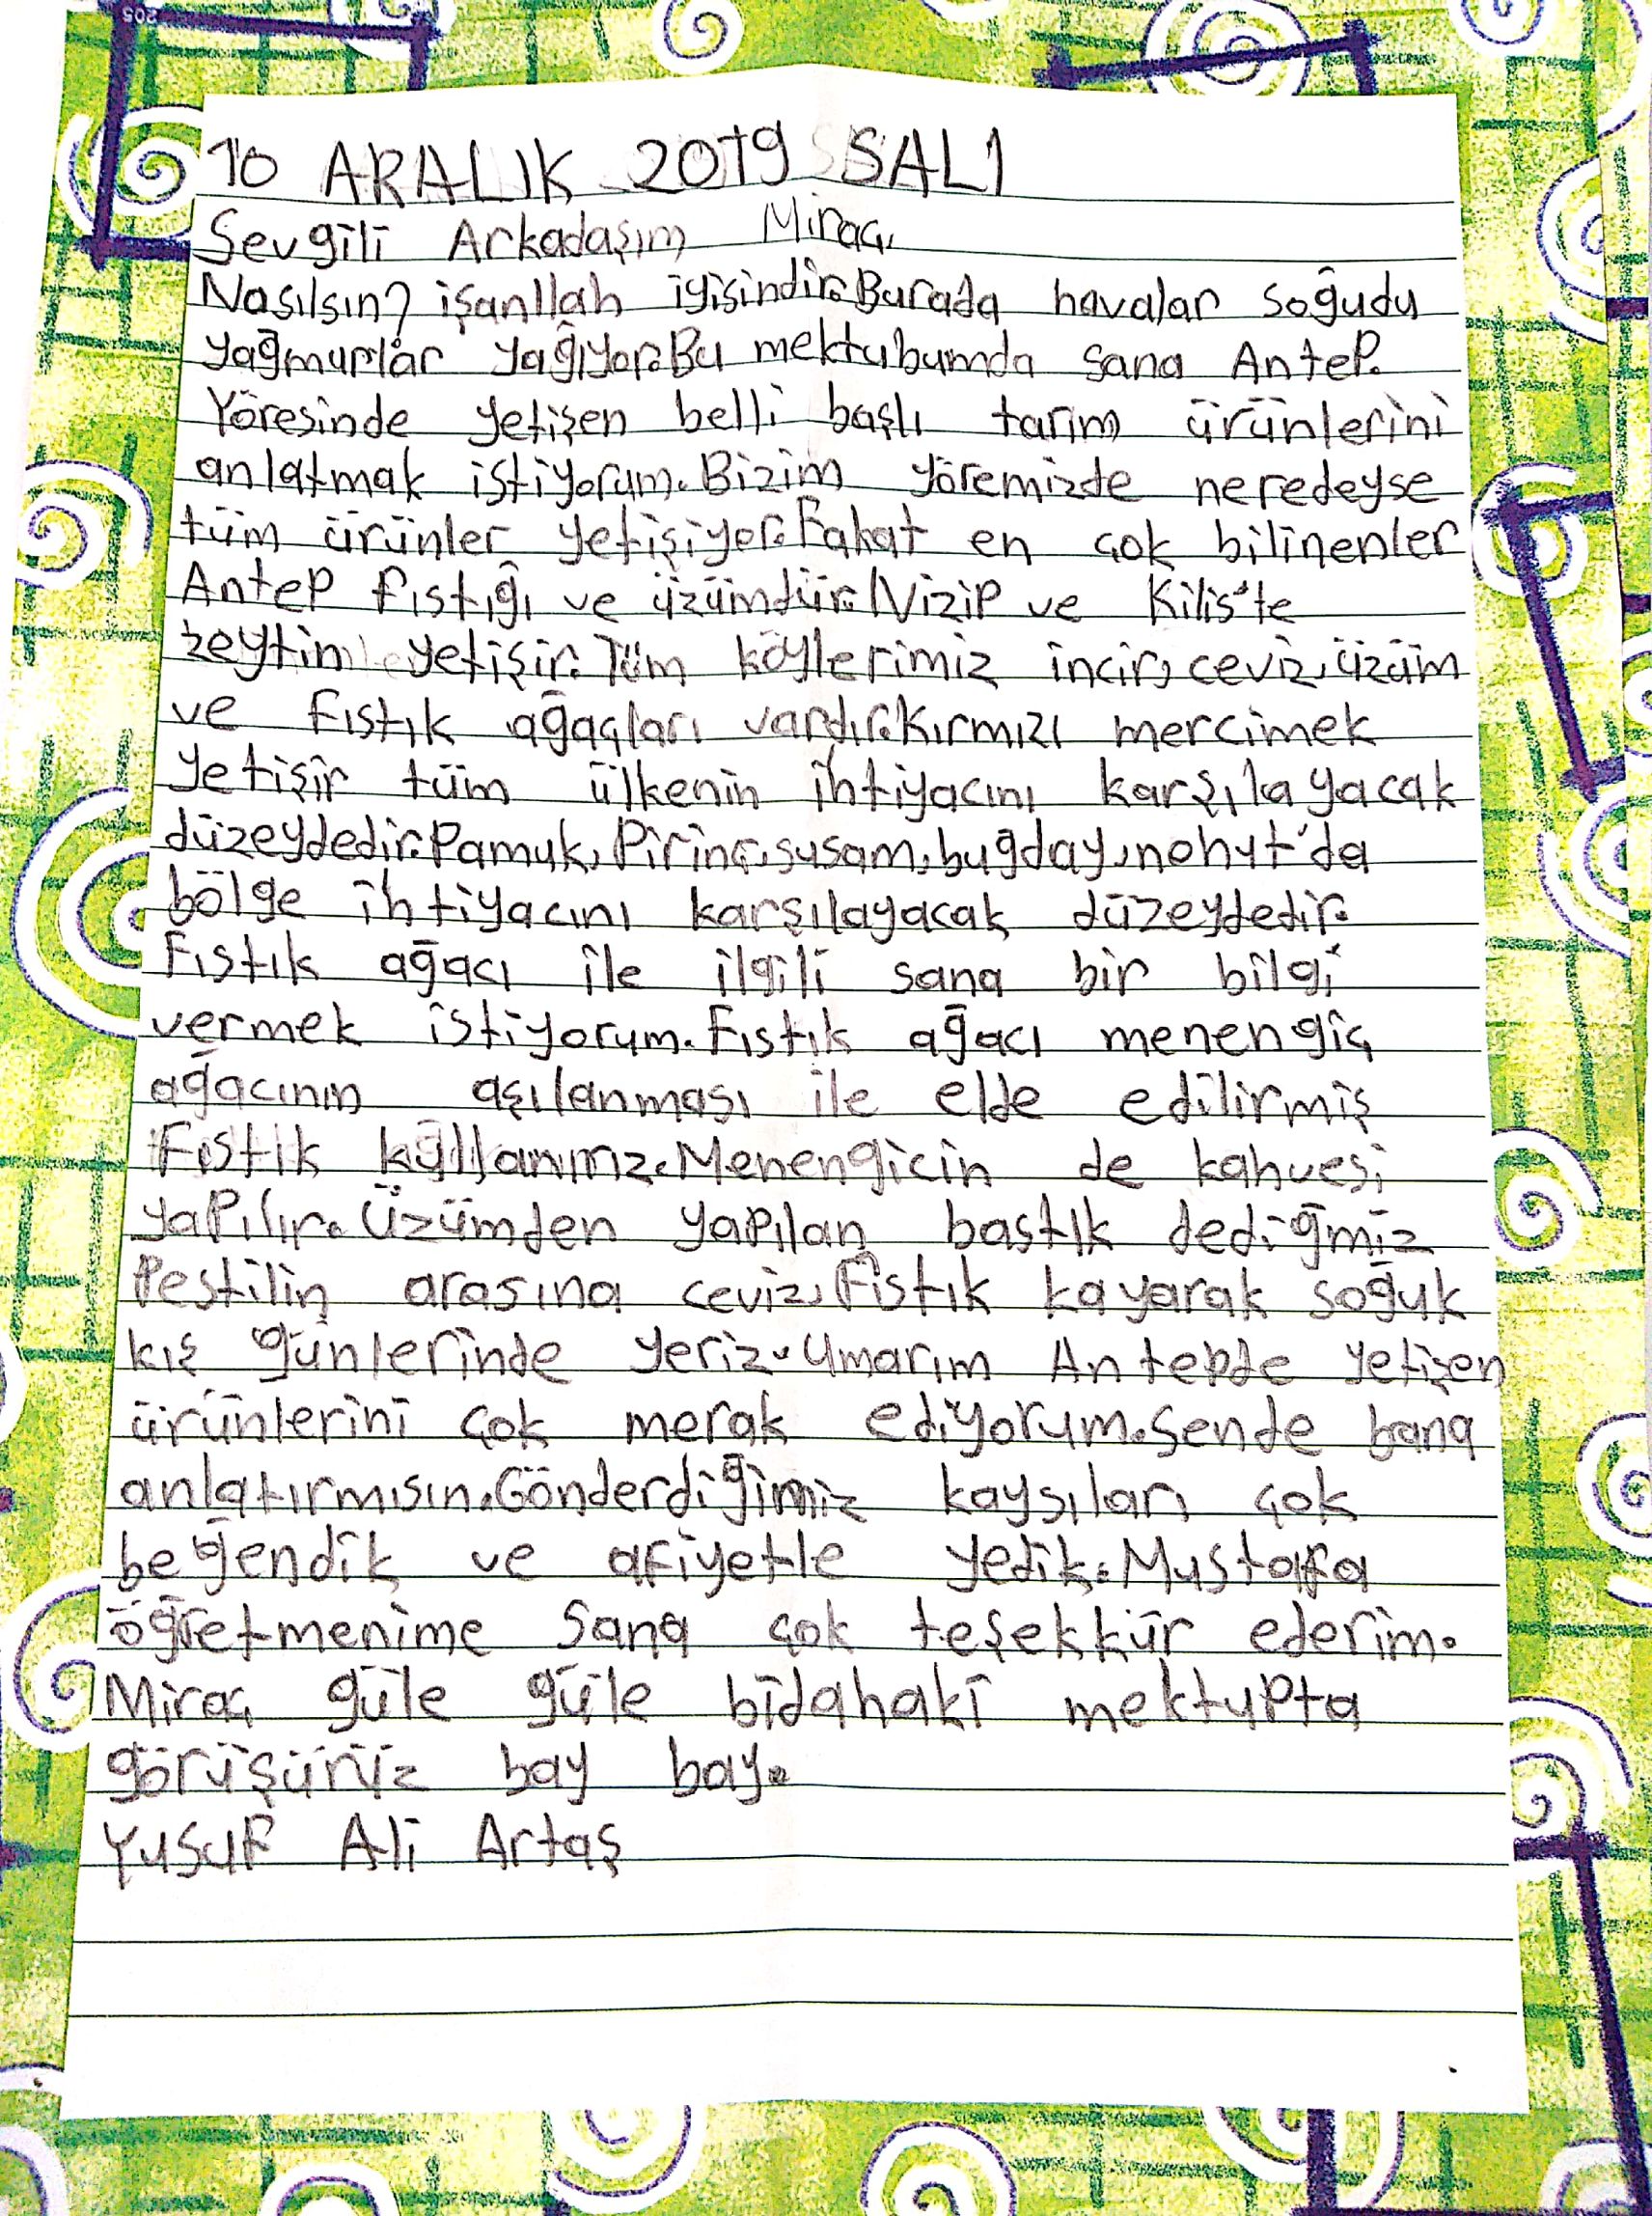 10 ARALIK 2019 SALI
Sevgili Arkadaşım Miraç,
Nasılsın? işanllah iyisindir.Burada havalar soğudu
yağmurlar yağıyor.Bu mektubumda sana Antep.
Yöresinde yetişen belli başlı tarım ürünlerini
anlatmak istiyorum.Bizim yöremizde neredeyse
tüm ürünler yetişiyor.Fakat en çok bilinenler
Antep fıstığı ve üzümdür.Nizip ve Kilis'te
zeytin yetişir.Tüm köylerimiz incir, ceviz, üzüm
ve fıstık ağaçları vardır.Kırmızı mercimek
yetişir tüm ülkenin ihtiyacını karşılayacak
düzeydedir.Pamuk, Pirinç, susam, buğday, nohut'da
bölge ihtiyacını karşılayacak düzeydedir.
Fıstık ağacı ile ilgili sana bir bilgi
vermek istiyorum.Fıstık ağacı menengiç
ağacının aşılanması ile elde edilirmiş
Fıstık Menengicin de kahvesi
yapılır.Üzümden yapılan bastık dediğmiz
Pestilin arasına ceviz, Fıstık kayarak soğuk
kış günlerinde yeriz.Umarım Antepde yetişen
ürünlerini çok merak ediyorum.Sende bana
anlatırmısın.Gönderdiğimiz kaysıları çok
beğendik ve afiyetle yedik.Mustafa
öğretmenime sana çok teşekkür ederim.
Miraç güle güle bidahaki mektupta
görüşürüz bay bay.
Yusuf Ali Artaş